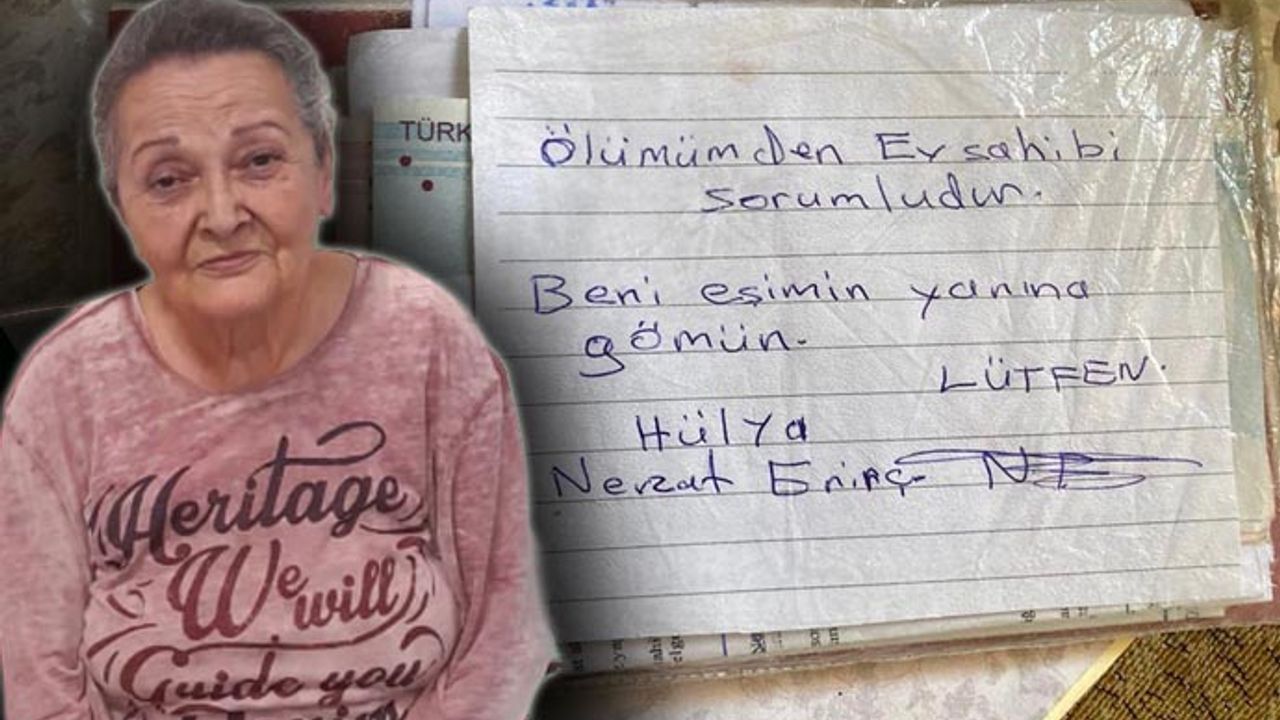 TÜRK
Ölümümden Ev sahibi
sorumludur.
Beni eşimin yanına
gömün.
LÜTFEN.
Hülya
Nevzat Erinç
Heritage
We
will
Guide you